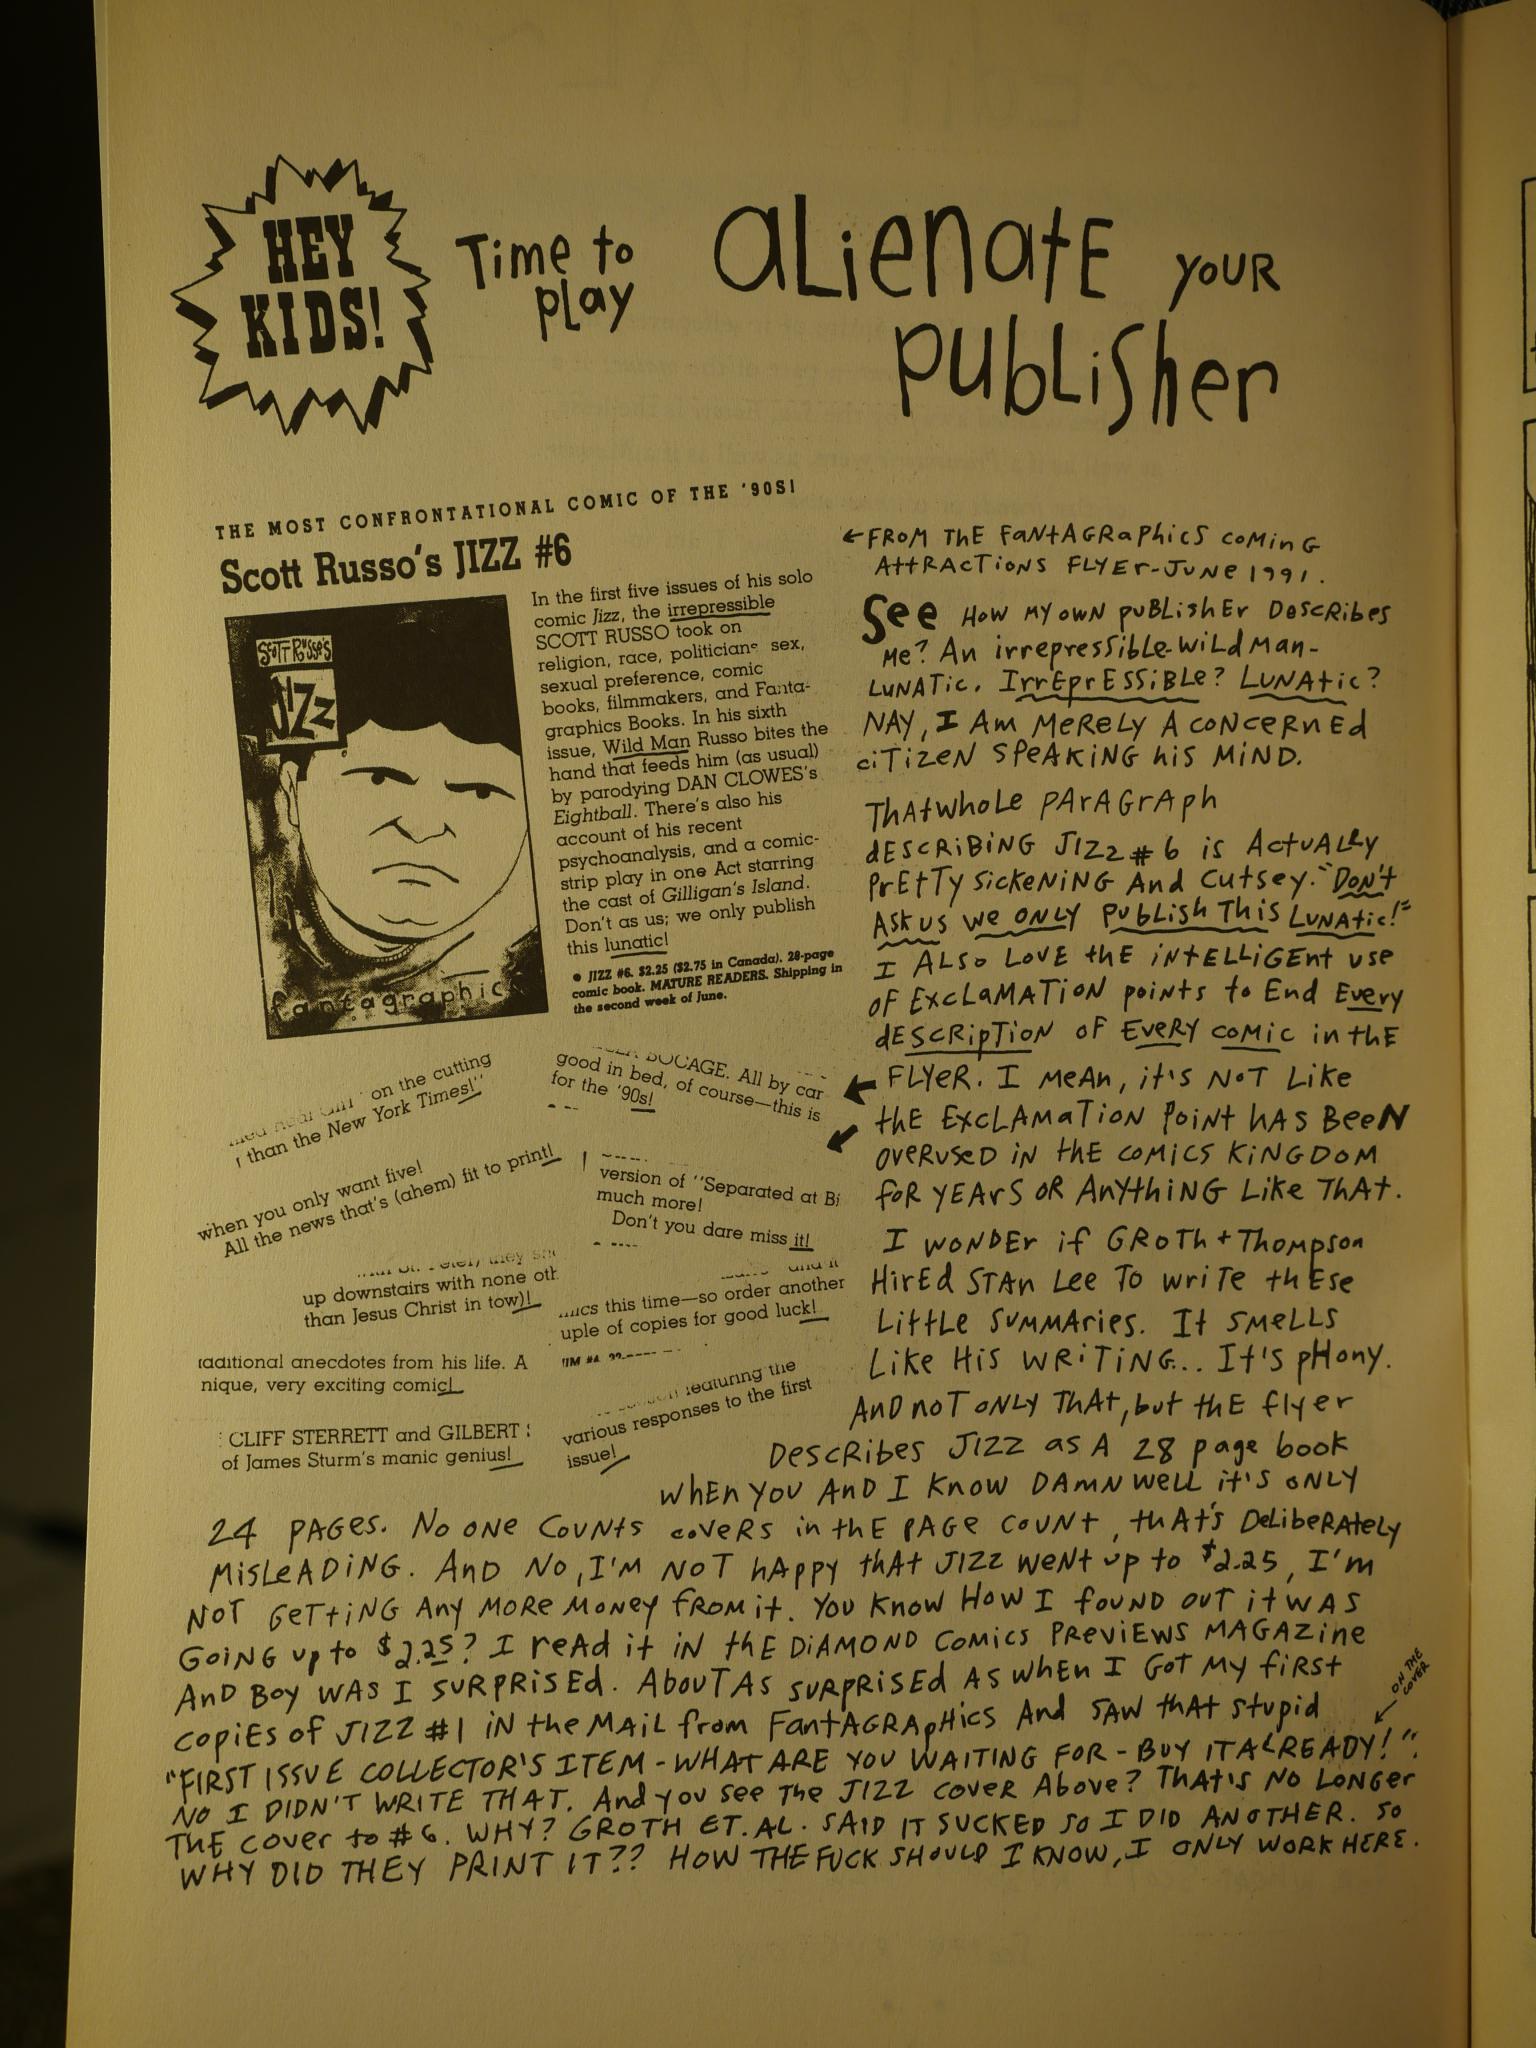 HEY
KIDS!
Time to
play
aLienatE your
publisher
THE MOST CONFRONTATIONAL COMIC OF THE '90S!
Scott Russo's JIZZ #6
SCOTT RUSSO'S
JIZZ
fantagraphics
In the first five issues of his solo
comic Jizz, the irrepressible
SCOTT RUSSO took on
religion, race, politicians sex,
sexual preference, comic
books, filmmakers, and Fanta-
graphics Books. In his sixth
issue, Wild Man Russo bites the
hand that feeds him (as usual)
by parodying DAN CLOWES's
Eightball. There's also his
account of his recent
psychoanalysis, and a comic-
strip play in one Act starring
the cast of Gilligan's Island.
Don't as us; we only publish
this lunatic!
● JIZZ #6. $2.25 ($2.75 in Canada). 28-page
comic book. MATURE READERS. Shipping in
the second week of June.
on the cutting
than the New York Times!"
when you only want five!
All the news that's (ahem) fit to print!
up downstairs with none oth
than Jesus Christ in tow)!
anecdotes from his life. A
nique, very exciting comic!
CLIFF STERRETT and GILBERT
of James Sturm's manic genius!
BOCAGE. All by car
good in bed, of course—this is
for the '90s!
version of "Separated at Bi
much more!
Don't you dare miss it!
this time—so order another
uple of copies for good luck!
featuring the
various responses to the first
issue!
← FROM THE FANTAGRAPHICS COMING
ATTRACTIONS FLYER-JUNE 1991.
SEE HOW MY OWN PUBLISHER DESCRIBES
ME? AN IRREPRESSIBLE-WILDMAN-
LUNATIC. IRREPRESSIBLE? LUNATIC?
NAY, I AM MERELY A CONCERNED
CITIZEN SPEAKING HIS MIND.
THAT WHOLE PARAGRAPH
DESCRIBING JIZZ #6 IS ACTUALLY
PRETTY SICKENING AND CUTSEY. "DON'T
ASK US WE ONLY PUBLISH THIS LUNATIC!"
I ALSO LOVE THE INTELLIGENT USE
OF EXCLAMATION POINTS TO END EVERY
DESCRIPTION OF EVERY COMIC IN THE
FLYER. I MEAN, IT'S NOT LIKE
THE EXCLAMATION POINT HAS BEEN
OVERUSED IN THE COMICS KINGDOM
FOR YEARS OR ANYTHING LIKE THAT.
I WONDER IF GROTH + THOMPSON
HIRED STAN LEE TO WRITE THESE
LITTLE SUMMARIES. IT SMELLS
LIKE HIS WRITING... IT'S PHONY.
AND NOT ONLY THAT, BUT THE FLYER
DESCRIBES JIZZ AS A 28 PAGE BOOK
WHEN YOU AND I KNOW DAMN WELL IT'S ONLY
24 PAGES. NO ONE COUNTS COVERS IN THE PAGE COUNT, THAT'S DELIBERATELY
MISLEADING. AND NO, I'M NOT HAPPY THAT JIZZ WENT UP TO $2.25, I'M
NOT GETTING ANY MORE MONEY FROM IT. YOU KNOW HOW I FOUND OUT IT WAS
GOING UP TO $2.25? I READ IT IN THE DIAMOND COMICS PREVIEWS MAGAZINE
AND BOY WAS I SURPRISED. ABOUT AS SURPRISED AS WHEN I GOT MY FIRST
COPIES OF JIZZ #1 IN THE MAIL FROM FANTAGRAPHICS AND SAW THAT STUPID
ON THE
COVER
"FIRST ISSUE COLLECTOR'S ITEM - WHAT ARE YOU WAITING FOR - BUY IT ALREADY!".
NO I DIDN'T WRITE THAT. AND YOU SEE THE JIZZ COVER ABOVE? THAT'S NO LONGER
THE COVER TO #6. WHY? GROTH ET. AL. SAID IT SUCKED SO I DID ANOTHER. SO
WHY DID THEY PRINT IT?? HOW THE FUCK SHOULD I KNOW, I ONLY WORK HERE.